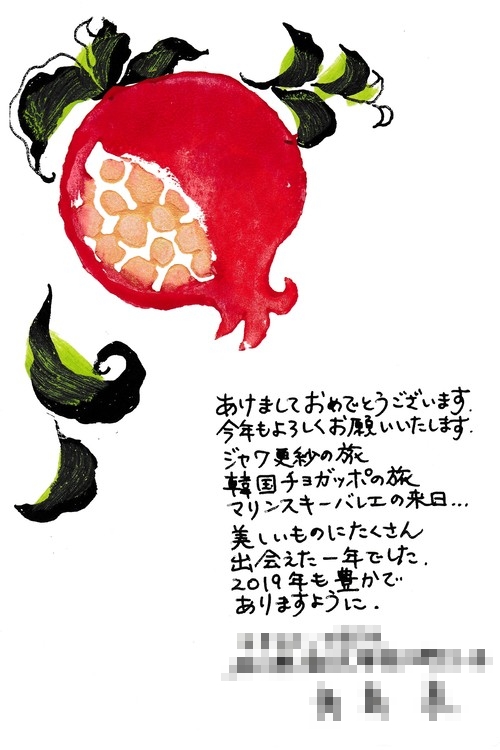 あけましておめでとうございます.
今年もよろしくお願いいたします.
ジャワ更紗の旅
韓国チョガッポの旅
マリンスキーバレエの来日...
美しいものにたくさん
出会えた一年でした.
2019年も豊かで
ありますように.